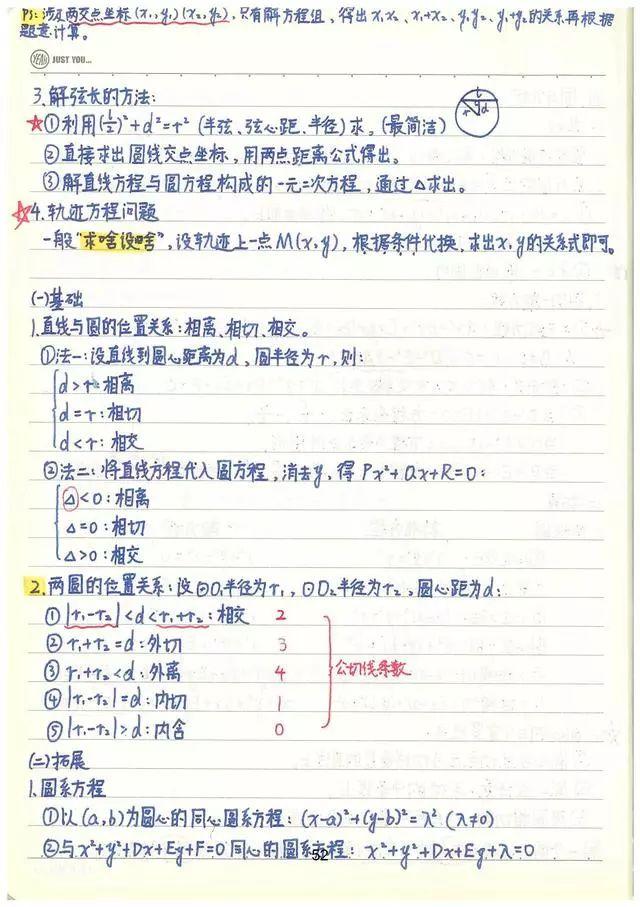 PS: 涉及两交点坐标(x₁,y₁)(x₂,y₂),只有解方程组,得出x₁x₂、x₁+x₂、y₁y₂、y₁+y₂的关系再根据
题意计算。
YEAH JUST YOU...
3.解弦长的方法:
l
r d
☆①利用(l/2)²+d²=r² (半弦、弦心距、半径)求。(最简洁)
②直接求出圆线交点坐标,用两点距离公式得出。
③解直线方程与圆方程构成的一元二次方程,通过△求出。
☆4.轨迹方程问题
一般"求啥设啥",设轨迹上一点M(x,y),根据条件代换,求出x,y的关系式即可。
(一)基础
1.直线与圆的位置关系:相离、相切、相交。
①法一:设直线到圆心距离为d,圆半径为r,则:
d>r:相离
d=r:相切
d<r:相交
②法二:将直线方程代入圆方程,消去y,得Px²+Qx+R=0:
△<0:相离
△=0:相切
△>0:相交
2.两圆的位置关系:设⊙O₁半径为r₁,⊙O₂半径为r₂,圆心距为d:
①|r₁-r₂|<d<r₁+r₂:相交 2
②r₁+r₂=d:外切 3
③r₁+r₂<d:外离 4 公切线条数
④|r₁-r₂|=d:内切 1
⑤|r₁-r₂|>d:内含 0
(二)拓展
1.圆系方程
①以(a,b)为圆心的同心圆系方程:(x-a)²+(y-b)²=λ²(λ≠0)
②与x²+y²+Dx+Ey+F=0同心的圆系方程:x²+y²+Dx+Ey+λ=0
52